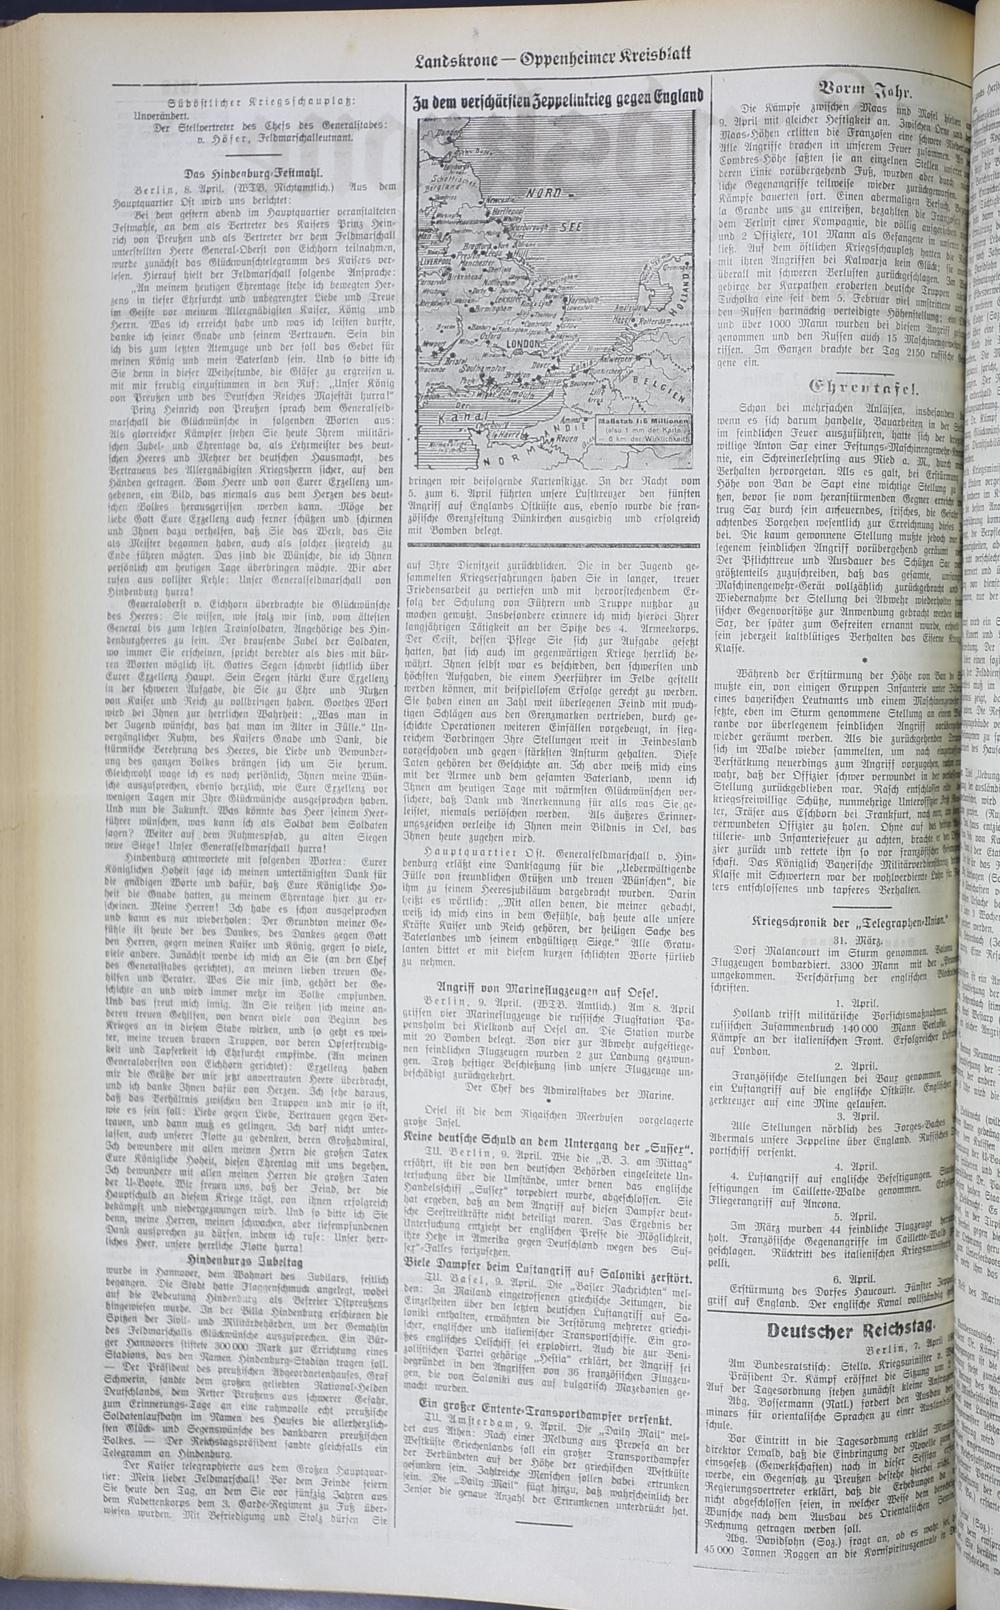 Landskrone — Oppenheimer Kreisblatt
Südöstlicher Kriegsschauplatz:
Unverändert.
Der Stellvertreter des Chefs des Generalstabes:
v. Höfer, Feldmarschalleutnant.
Das Hindenburg-Festmahl.
Berlin, 8. April. (WTB. Nichtamtlich.) Aus dem
Hauptquartier Ost wird uns berichtet:
Bei dem gestern abend im Hauptquartier veranstalteten
Festmahle, an dem als Vertreter des Kaisers Prinz Hein-
rich von Preußen und als Vertreter der dem Feldmarschall
unterstellten Heere General-Oberst von Eichhorn teilnahmen,
wurde zunächst das Glückwunschtelegramm des Kaisers ver-
lesen. Hierauf hielt der Feldmarschall folgende Ansprache:
„An meinem heutigen Ehrentage stehe ich bewegten Her-
zens in tiefer Ehrfurcht und unbegrenzter Liebe und Treue
im Geiste vor meinem Allergnädigsten Kaiser, König und
Herrn. Was ich erreicht habe und was ich leisten durfte,
danke ich seiner Gnade und seinem Vertrauen. Sein bin
ich bis zum letzten Atemzuge und der soll das Gebet für
meinen König und mein Vaterland sein. Und so bitte ich
Sie denn in dieser Weihestunde, die Gläser zu ergreifen u.
mit mir freudig einzustimmen in den Ruf: „Unser König
von Preußen und des Deutschen Reiches Majestät hurra!"
Prinz Heinrich von Preußen sprach dem Generalfeld-
marschall die Glückwünsche in folgenden Worten aus:
Als glorreicher Kämpfer stehen Sie heute Ihrem militäri-
schen Jubel- und Ehrentage da, als Lehrmeister des deut-
schen Heeres und Mehrer der deutschen Hausmacht, des
Vertrauens des Allergnädigsten Kriegsherrn sicher, auf den
Händen getragen. Vom Heere und von Eurer Exzellenz um-
gebenen, ein Bild, das niemals aus dem Herzen des deut-
schen Volkes herausgerissen werden kann. Möge der
liebe Gott Eure Exzellenz auch ferner schützen und schirmen
und Ihnen dazu verhelfen, daß Sie das Werk, das Sie
als Meister begonnen haben, auch als solcher siegreich zu
Ende führen mögten. Das sind die Wünsche, die ich Ihnen
persönlich am heutigen Tage überbringen möchte. Wir aber
rufen aus vollster Kehle: Unser Generalfeldmarschall von
Hindenburg hurra!
Generaloberst v. Eichhorn überbrachte die Glückwünsche
des Heeres: Sie wissen, wie stolz wir sind, vom ältesten
General bis zum letzten Trainsoldaten, Angehörige des Hin-
denburgheeres zu sein. Der brausende Jubel der Soldaten,
wo immer Sie erscheinen, spricht beredter als dies mit dür-
ren Worten möglich ist. Gottes Segen schwebt sichtlich über
Eurer Exzellenz Haupt. Sein Segen stärkt Eure Exzellenz
in der schweren Aufgabe, die Sie zu Ehre und Nutzen
von Kaiser und Reich zu vollbringen haben. Goethes Wort
wird bei Ihnen zur herrlichen Wahrheit: „Was man in
der Jugend wünscht, das hat man im Alter in Fülle." Un-
vergänglicher Ruhm, des Kaisers Gnade und Dank, die
stürmische Verehrung des Heeres, die Liebe und Bewunder-
ung des ganzen Volkes drängen sich um Sie herum.
Gleichwohl wage ich es noch persönlich, Ihnen meine Wün-
sche auszusprechen, ebenso herzlich, wie Eure Exzellenz vor
wenigen Tagen mir Ihre Glückwünsche ausgesprochen haben.
Und nun die Zukunft. Was könnte das Heer seinem Heer-
führer wünschen, was kann ich als Soldat dem Soldaten
sagen? Weiter auf dem Ruhmespfad, zu alten Siegen
neue Siege! Unser Generalfeldmarschall hurra!
Hindenburg antwortete mit folgenden Worten: Eurer
Königlichen Hoheit sage ich meinen untertänigsten Dank für
die gnädigen Worte und dafür, daß Eure Königliche Ho-
heit die Gnade hatten, zu meinem Ehrentage hier zu er-
scheinen. Meine Herren! Ich habe es schon ausgesprochen
und kann es nur wiederholen: Der Grundton meiner Ge-
fühle ist heute der des Dankes, des Dankes gegen Gott
den Herren, gegen meinen Kaiser und König, gegen so viele,
viele andere. Zunächst wende ich mich an Sie (an den Chef
des Generalstabes gerichtet), an meinen lieben treuen Ge-
hilfen und Berater. Was Sie mir sind, gehört der Ge-
schichte an und wird immer mehr im Volke empfunden.
Und das freut mich innig. An Sie reihen sich meine an-
deren treuen Gehilfen, von denen viele von Beginn des
Krieges an in diesem Stabe wirken, und so geht es wei-
ter, meine treuen braven Truppen, vor deren Opferfreudig-
keit und Tapferkeit ich Ehrfurcht empfinde. (An meinen
Generalobersten von Eichhorn gerichtet): Exzellenz haben
mir die Grüße der mir jetzt anvertrauten Heere überbracht,
und ich danke Ihnen dafür von Herzen. Ich sehe daraus,
daß das Verhältnis zwischen den Truppen und mir so ist,
wie es sein soll: Liebe gegen Liebe, Vertrauen gegen Ver-
trauen, und dann muß es gelingen. Ich darf nicht unter-
lassen, auch unserer Flotte zu gedenken, deren Großadmiral,
Eure Königliche Hoheit, diesen Ehrentag mit uns begehen.
Ich bewundere mit allen meinen Herren die großen Taten
der U-Boote. Wir freuen uns, daß der Feind, der die
Hauptschuld an diesem Kriege trägt, von ihnen erfolgreich
bekämpft und niedergezwungen wird. Und so bitte ich Sie
denn, meine Herren, meinen schwachen, aber tiefempfundenen
Dank aussprechen zu dürfen, indem ich rufe: Unser herr-
liches Heer, unsere herrliche Flotte hurra!
Hindenburgs Jubeltag
wurde in Hannover, dem Wohnort des Jubilars, festlich
begangen. Die Stadt hatte Flaggenschmuck angelegt, wobei
auf die Bedeutung Hindenburg als Befreier Ostpreußens
hingewiesen wurde. In der Villa Hindenburg erschienen die
Spitzen der Zivil- und Militärbehörden, um der Gemahlin
des Feldmarschalls Glückwünsche auszusprechen. Ein Bür-
ger Hannovers stiftete 300 000 Mark zur Errichtung eines
Stadions, das den Namen Hindenburg-Stadion tragen soll.
— Der Präsident des preußischen Abgeordnetenhauses, Graf
Schwerin, sandte dem großen geliebten National-Helden
Deutschlands, dem Retter Preußens aus schwerer Gefahr,
zum Erinnerungs-Tage an eine ruhmvolle echt preußische
Soldatenlaufbahn im Namen des Hauses die allerherzlich-
sten Glück- und Segenswünsche des dankbaren preußischen
Volkes. — Der Reichstagspräsident sandte gleichfalls ein
Telegramm an Hindenburg.
Der Kaiser telegraphierte aus dem Großen Hauptquar-
tier: Mein lieber Feldmarschall! Vor dem Feinde feiern
Sie heute den Tag, an dem Sie vor fünfzig Jahren aus
dem Kadettenkorps dem 3. Garde-Regiment zu Fuß über-
wiesen wurden. Mit Befriedigung und Stolz dürfen Sie
Zu dem verschärften Zeppelinkrieg gegen England
NORD-
SEE
Schottisches
Bergland
Newcastle
Hartlepool
Scarborough
Bradford
Hull
LIVERPOOL
Manchester
Nottingham
Leicester
Yarmouth
Birmingham
Cambridge
Oxford
LONDON
Bristol
Southampton
Brighton
Dover
Portsmouth
Calais
Antwerpen
Amsterdam
Haag
Rotterdam
Groningen
HOLLAND
BELGIEN
Lille
Amiens
Der
Kanal
Le Havre
Rouen
NORMANDIE
Maßstab 1:6 Millionen
(also 1 mm der Karte
= 6 km der Wirklichkeit)
bringen wir beifolgende Kartenskizze. In der Nacht vom
5. zum 6. April führten unsere Luftkreuzer den fünften
Angriff auf Englands Ostküste aus, ebenso wurde die fran-
zösische Grenzfestung Dünkirchen ausgiebig und erfolgreich
mit Bomben belegt.
auf Ihre Dienstzeit zurückblicken. Die in der Jugend ge-
sammelten Kriegserfahrungen haben Sie in langer, treuer
Friedensarbeit zu vertiefen und mit hervorstechendem Er-
folg der Schulung von Führern und Truppe nutzbar zu
machen gewußt. Insbesondere erinnere ich mich hierbei Ihrer
langjährigen Tätigkeit an der Spitze des 4. Armeekorps.
Der Geist, dessen Pflege Sie sich zur Aufgabe gesetzt
hatten, hat sich auch im gegenwärtigen Kriege herrlich be-
währt. Ihnen selbst war es beschieden, den schwersten und
höchsten Aufgaben, die einem Heerführer im Felde gestellt
werden können, mit beispiellosem Erfolge gerecht zu werden.
Sie haben einen an Zahl weit überlegenen Feind mit wuch-
tigen Schlägen aus den Grenzmarken vertrieben, durch ge-
schickte Operationen weiteren Einfällen vorgebeugt, in sieg-
reichem Vordringen Ihre Stellungen weit in Feindesland
vorgeschoben und gegen stärksten Ansturm gehalten. Diese
Taten gehören der Geschichte an. Ich aber weiß mich eins
mit der Armee und dem gesamten Vaterland, wenn ich
Ihnen am heutigen Tage mit wärmsten Glückwünschen ver-
sichere, daß Dank und Anerkennung für alls was Sie ge-
leistet, niemals verlöschen werden. Als äußeres Erinner-
ungszeichen verleihe ich Ihnen mein Bildnis in Oel, das
Ihnen heute zugehen wird.
Hauptquartier Ost. Generalfeldmarschall v. Hin-
denburg erläßt eine Danksagung für die „Ueberwältigende
Fülle von freundlichen Grüßen und treuen Wünschen", die
ihm zu seinem Heeresjubiläum dargebracht wurden. Darin
heißt es wörtlich: „Mit allen denen, die meiner gedacht,
weiß ich mich eins in dem Gefühle, daß heute alle unsere
Kräfte Kaiser und Reich gehören, der heiligen Sache des
Vaterlandes und seinem endgültigen Siege." Alle Gratu-
lanten bittet er mit diesem kurzen schlichten Worte fürlieb
zu nehmen.
Angriff von Marineflugzeugen auf Oesel.
Berlin, 9. April. (WTB. Amtlich.) Am 8. April
griffen vier Marineflugzeuge die russische Flugstation Pa-
pensholm bei Kielkond auf Oesel an. Die Station wurde
mit 20 Bomben belegt. Von vier zur Abwehr aufgestiege-
nen feindlichen Flugzeugen wurden 2 zur Landung gezwun-
gen. Trotz heftiger Beschießung sind unsere Flugzeuge un-
beschädigt zurückgekehrt.
Der Chef des Admiralstabes der Marine.
*
Oesel ist die dem Rigaischen Meerbusen vorgelagerte
große Insel.
Keine deutsche Schuld an dem Untergang der „Sussex".
TU. Berlin, 9. April. Wie die „B. Z. am Mittag"
erfährt, ist die von den deutschen Behörden eingeleitete Un-
tersuchung über die Umstände, unter denen das englische
Handelsschiff „Sussex" torpediert wurde, abgeschlossen. Sie
hat ergeben, daß an dem Angriff auf diesen Dampfer deut-
sche Seestreitkräfte nicht beteiligt waren. Das Ergebnis der
Untersuchung entzieht der englischen Presse die Möglichkeit,
ihre Hetze in Amerika gegen Deutschland wegen des Sus-
sex"-Falles fortzusetzen.
Viele Dampfer beim Luftangriff auf Saloniki zerstört.
TU. Basel, 9. April. Die „Basler Nachrichten" mel-
den: In Mailand eingetroffenen griechische Zeitungen, die
Einzelheiten über den letzten deutschen Luftangriff auf Sa-
loniki enthalten, erwähnten die Zerstörung mehrerer griechi-
scher, englischer und italienischer Transportschiffe. Ein gro-
ßes englisches Oelschiff sei explodiert. Auch die zur Beni-
zolistischen Partei gehörige „Hestia" erklärt, der Angriff sei
begründet in den Angriffen von 36 französischen Flugzeu-
gen, die von Saloniki aus auf bulgarisch Mazedonien ge-
macht wurden.
Ein großer Entente-Transportdampfer versenkt.
TU. Amsterdam, 9. April. Die „Daily Mail" mel-
det aus Athen: Nach einer Meldung aus Prevesa an der
Westküste Griechenlands soll ein großer Transportdampfer
der Verbündeten auf der Höhe der griechischen Westküste
gesunken sein. Zahlreiche Menschen sollen dabei ertrunken
sein. Die „Daily Mail" fügt hinzu, daß wahrscheinlich der
Zensor die genaue Anzahl der Ertrunkenen unterdrückt hat.
Vorm Jahr.
Die Kämpfe zwischen Maas und Mosel hielten am
9. April mit gleicher Heftigkeit an. Zwischen Orne und
Maas-Höhen erlitten die Franzosen eine schwere
Alle Angriffe brachen in unserem Feuer zusammen.
Combres-Höhe faßten sie an einzelnen Stellen unserer
deren Linie vorübergehend Fuß, wurden aber durch
liche Gegenangriffe teilweise wieder zurückgeworfen.
Kämpfe dauerten fort. Einen abermaligen Versuch,
la Grande uns zu entreißen, bezahlten die Franzosen
dem Verlust einer Kompagnie, die völlig aufgerieben
und 2 Offiziere, 101 Mann als Gefangene in unserer
ließ. Auf dem östlichen Kriegsschauplatz hatten die
mit ihren Angriffen bei Kalwarja kein Glück; sie
überall mit schweren Verlusten zurückgeschlagen. Im
gebirge der Karpathen eroberten deutsche Truppen
Tucholka eine seit dem 5. Februar viel umstrittene
den Russen hartnäckig verteidigte Höhenstellung; ein
und über 1000 Mann wurden bei diesem Angriff
genommen und den Russen auch 15 Maschinengewehre
rissen. Im Ganzen brachte der Tag 2150 russische
gene ein.
Ehrentafel.
Schon bei mehrfachen Anlässen, insbesondere
wenn es sich darum handelte, Bauarbeiten in der
im feindlichen Feuer auszuführen, hatte sich der
willige Anton Sax einer Festungs-Maschinengewehr-
nie, ein Schreinerlehrling aus Ried a. M., durch
Verhalten hervorgetan. Als es galt, bei Erstürmung
Höhe von Ban de Sapt eine wichtige Stellung zu
ten, bevor sie vom heranstürmenden Gegner erreicht
trug Sax durch sein anfeuerndes, frisches, die Gefahr
achtendes Vorgehen wesentlich zur Erreichung dieses
bei. Die kaum gewonnene Stellung mußte jedoch vor
legenem feindlichen Angriff vorübergehend geräumt
Der Pflichttreue und Ausdauer des Schützen Sax
größtenteils zuzuschreiben, daß das gesamte,
Maschinengewehr-Gerät vollzählich zurückgebracht und
Wiedernahme der Stellung bei Abwehr wiederholter
sischer Gegenvorstöße zur Anwendung gebracht werden
Sax, der später zum Gefreiten ernannt wurde, erhielt
sein jederzeit kaltblütiges Verhalten das Eiserne Kreuz
Klasse.
*
Während der Erstürmung der Höhe von Ban de
mußte ein, von einigen Gruppen Infanterie unter
eines bayerischen Leutnants und einem Maschinengewehr
setzte, eben im Sturm genommene Stellung an einem
rande vor überlegenem feindlichen Angriff vorübergehend
wieder geräumt werden. Als die zurückgehenden
sich im Walde wieder sammelten, um nach
Verstärkung neuerdings zum Angriff vorzugehen,
wahr, daß der Offizier schwer verwundet in der
Stellung zurückgeblieben war. Rasch entschlossen
kriegsfreiwillige Schütze, nunmehrige Unteroffizier
ter, Fräser aus Eschborn bei Frankfurt,
verwundeten Offizier zu holen. Ohne auf das
tillerie- und Infanteriefeuer zu achten, brachte er
zier zurück und rettete ihn so vor französischer
schaft. Das Königlich Bayerische Militärverdienst
Klasse mit Schwertern war der wohlverdiente Lohn
ters entschlossenes und tapferes Verhalten.
Kriegschronik der „Telegraphen-Union."
31. März.
Dorf Malancourt im Sturm genommen.
Flugzeugen bombardiert. 3300 Mann mit der
umgekommen. Verschärfung der englischen
schriften.
1. April.
Holland trifft militärische Vorsichtsmaßnahmen.
russischen Zusammenbruch 140 000 Mann Verluste.
Kämpfe an der italienischen Front. Erfolgreicher
auf London.
2. April.
Französische Stellungen bei Vaux genommen.
ein Luftangriff auf die englische Ostküste. Englischer
zerkreuzer auf eine Mine gelaufen.
3. April.
Alle Stellungen nördlich des Forges-Baches
Abermals unsere Zeppeline über England. Russisches
portschiff versenkt.
4. April.
4. Luftangriff auf englische Befestigungen.
festigungen im Caillette-Walde genommen.
Fliegerangriff auf Ancona.
5. April.
Im März wurden 44 feindliche Flugzeuge
holt. Französische Gegenangriffe im Caillette-Walde
geschlagen. Rücktritt des italienischen Kriegsministers
pelli.
6. April.
Erstürmung des Dorfes Haucourt. Fünfter
griff auf England. Der englische Kanal vollständig
Deutscher Reichstag.
Berlin, 7. April
Am Bundesratstisch: Stellv. Kriegsminister v.
Präsident Dr. Kämpf eröffnet die Sitzung um
Auf der Tagesordnung stehen zunächst kleine Anfragen.
Abg. Bossermann (Natl.) fordert den Ausbau des
minars für orientalische Sprachen zu einer Auslands-
schule.
Vor Eintritt in die Tagesordnung erklärt
direktor Lewald, daß die Einbringung der Novelle zum
einsgesetz (Gewerkschaften) noch in dieser Session
werde, ein Gegensatz zu Preußen bestehe hierbei nicht.
Regierungsvertreter erklärt, daß die Erhebungen
nicht abgeschlossen seien, in welcher Weise dem
Wunsche nach dem Ausbau des Orientalischen
Rechnung getragen werden soll.
Abg. Davidsohn (Soz.) fragt an, ob es wahr sei,
45 000 Tonnen Roggen an die Kornspirituszentrale